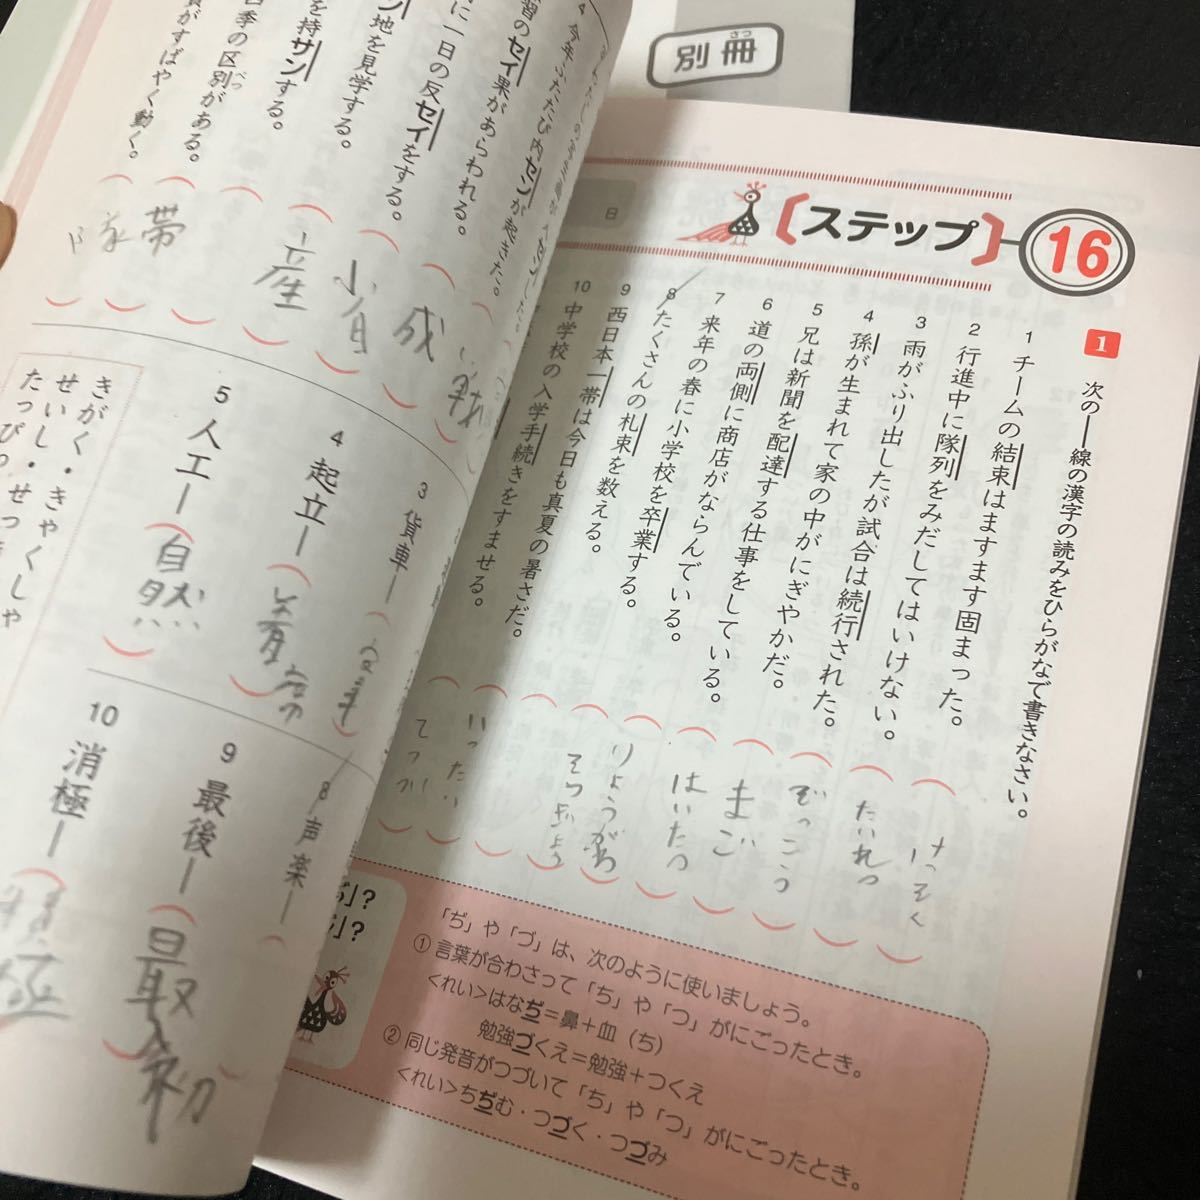 別冊
さつ
ステップ
16
日
1 次の―線の漢字の読みをひらがなで書きなさい。
1 チームの結束はますます固まった。
けっそく
2 行進中に隊列をみだしてはいけない。
たいれつ
3 雨がふり出したが試合は続行された。
ぞっこう
4 孫が生まれて家の中がにぎやかだ。
まご
5 兄は新聞を配達する仕事をしている。
はいたつ
6 道の両側に商店がならんでいる。
りょうがわ
7 来年の春に小学校を卒業する。
そつぎょう
8 たくさんの札束を数える。
9 西日本一帯は今日も真夏の暑さだ。
いったい
10 中学校の入学手続きをすませる。
てつづ
「ぢ」や「づ」は、次のように使いましょう。
① 言葉が合わさって「ち」や「つ」がにごったとき。
<れい>はなぢ=鼻+血(ち)
勉強づくえ=勉強+つくえ
② 同じ発音がつづいて「ち」や「つ」がにごったとき。
<れい>ちぢむ・つづく・つづみ
4 今年ふたたび内センが起きた。
習のセイ果があらわれる。
成
に一日の反セイをする。
省
ン地を見学する。
産
を持サンする。
四季の区別がある。
べつ
がすばやく動く。
帯
3 貨車―
4 起立―
着席
5 人工―
自然
8 声楽―
9 最後―
最初
10 消極―
積極
きがく・きゃくしゃ
せいし・せっ
たっぴつ